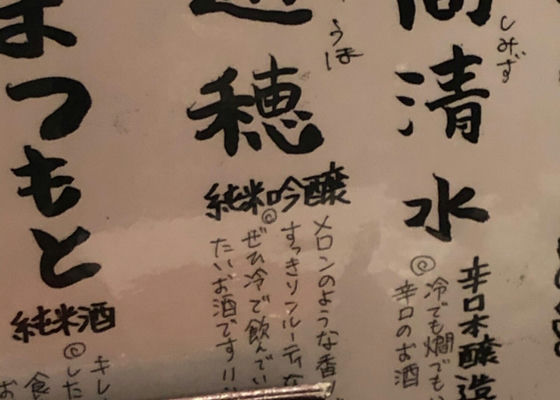 清水
しみず
辛口本醸造
冷でも燗でも
辛口のお酒
穂
うほ
純米吟醸
メロンのような香り
すっきりフルーティな
ぜひ冷で飲んでい
たいお酒です!!
まつもと
純米酒
キレ
した
食
お